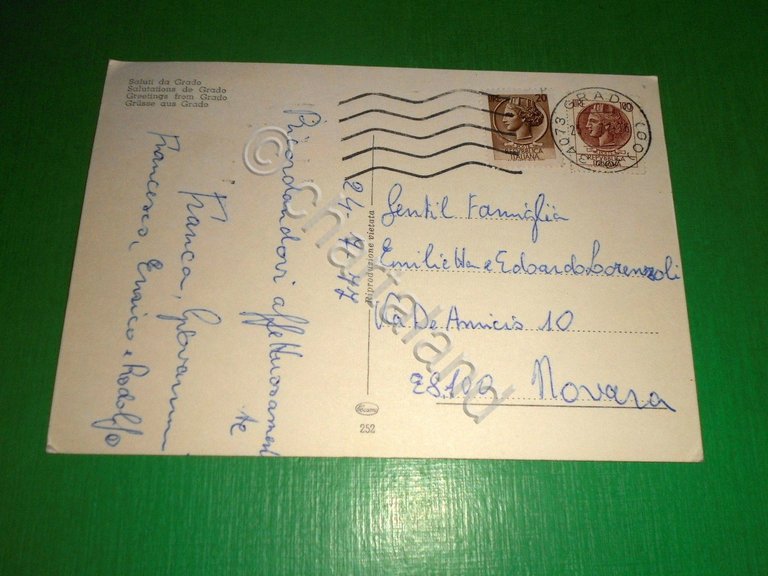 Saluti da Grado
Salutations de Grado
Greetings from Grado
Grüsse aus Grado
Ricordandovi affettuosamen
te
Franca, Giovanni
Francesca, Enrico e Rodolfo
Riproduzione vietata
252
20
REPUBBLICA
ITALIANA
LIRE 120
34073 GRADO (GO)
Gentil Famiglia
Emilietta e Edoardo Lorenzoli
Via De Amicis 10
28100 Novara
© chartaland